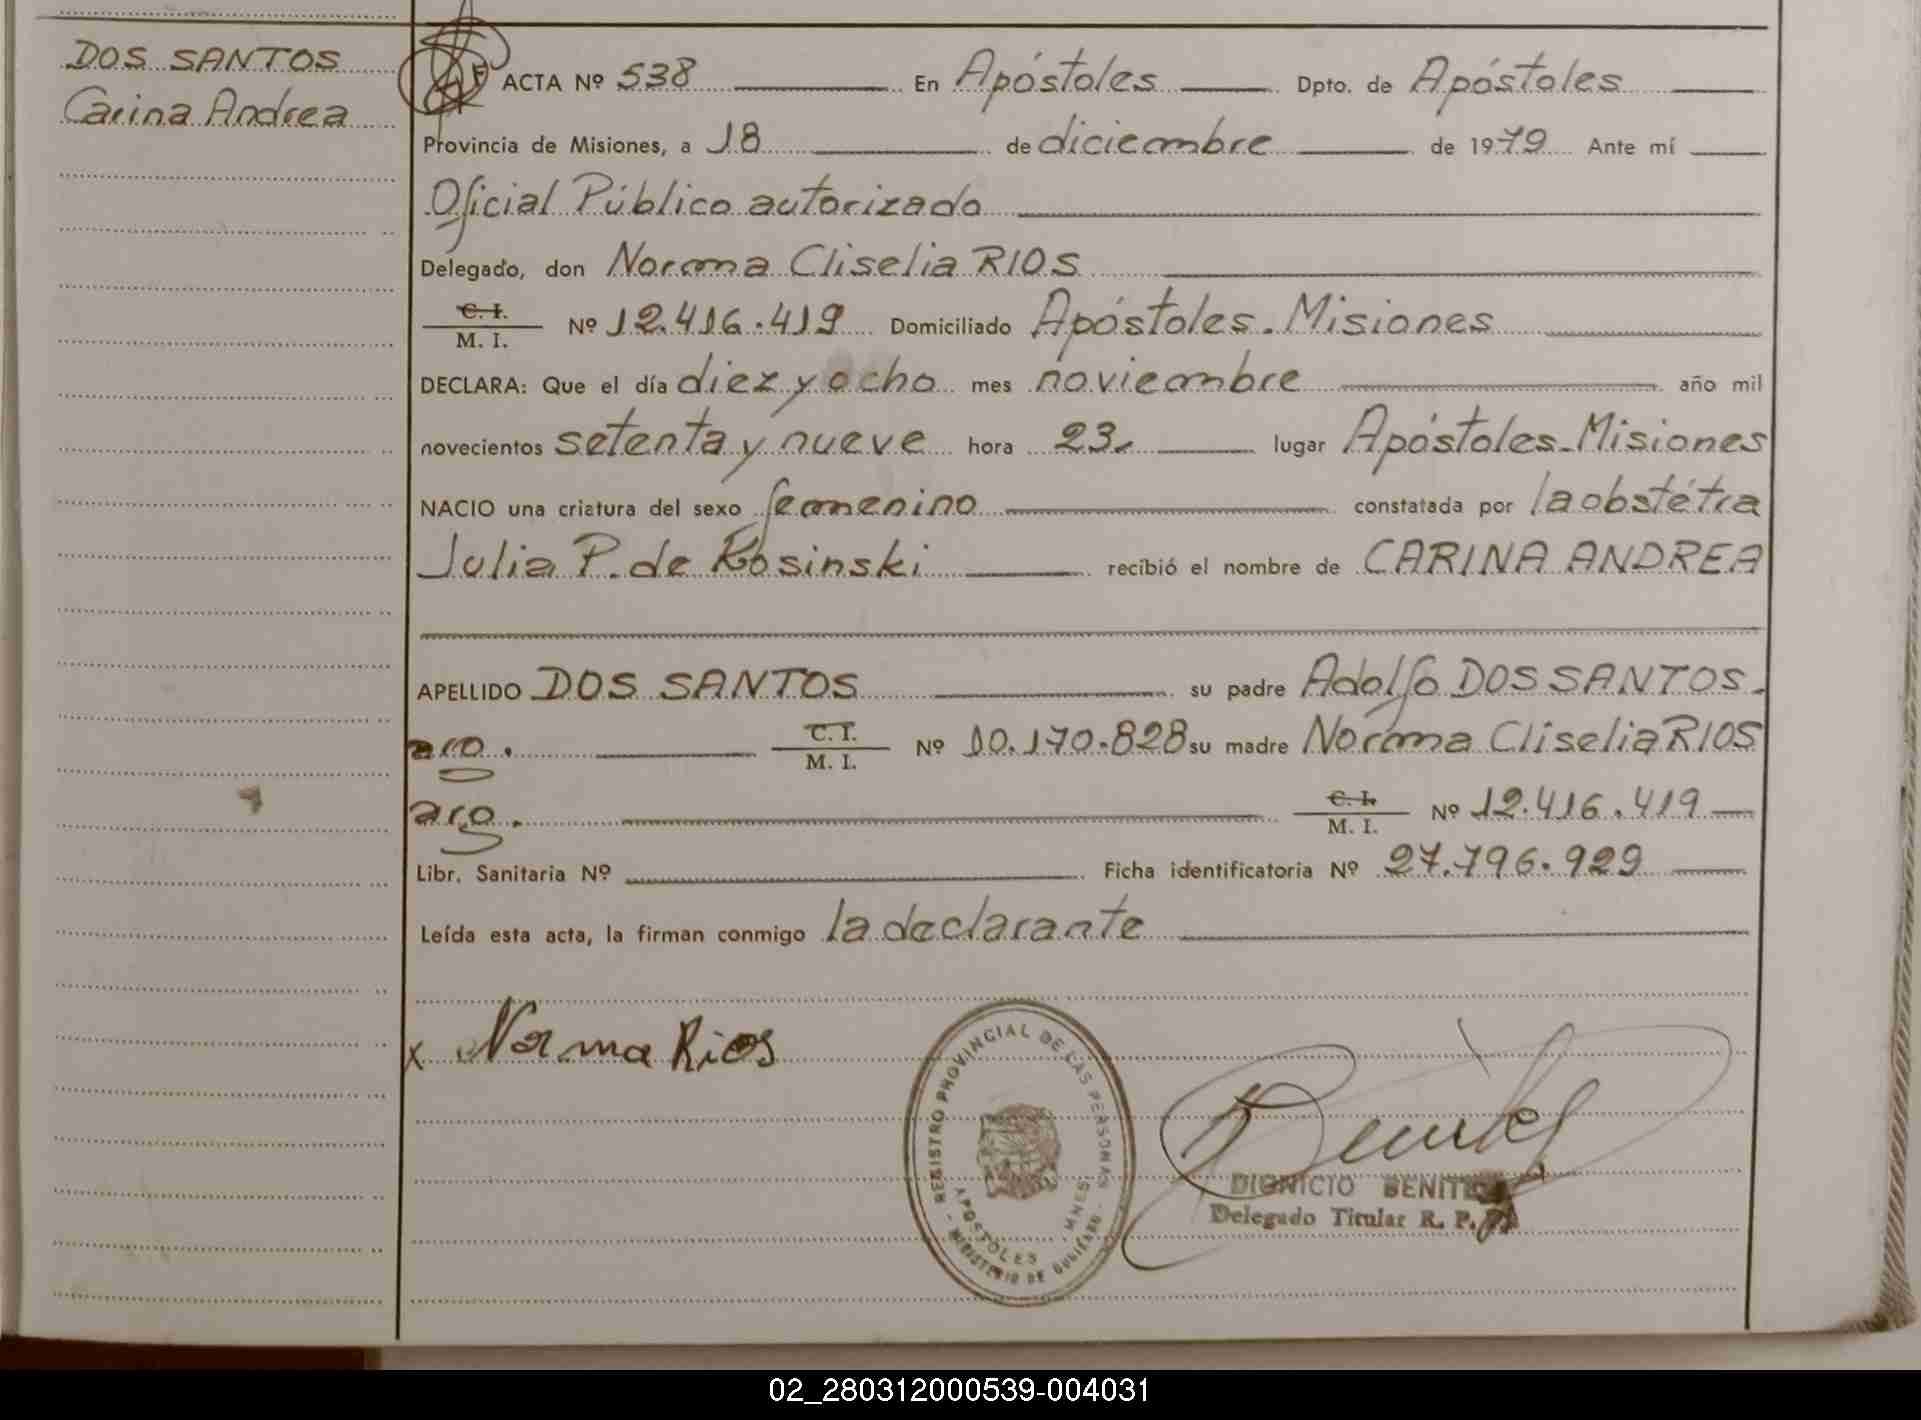 DOS SANTOS
Carina Andrea
ACTA Nº 538 En Apóstoles Dpto. de Apóstoles
Provincia de Misiones, a 18 de diciembre de 1979 Ante mí
Oficial Público autorizado
Delegado, don Norma Cliselia RIOS
C. I.
M. I. Nº 12.416.419 Domiciliado Apóstoles. Misiones
DECLARA: Que el día diez y ocho mes noviembre año mil
novecientos setenta y nueve hora 23. lugar Apóstoles-Misiones
NACIO una criatura del sexo femenino constatada por la obstétra
Julia P. de Kosinski recibió el nombre de CARINA ANDREA
APELLIDO DOS SANTOS su padre Adolfo DOS SANTOS.
arg. C. I. M. I. Nº 10.170.828 su madre Norma Cliselia RIOS
arg. C. I. M. I. Nº 12.416.419
Libr. Sanitaria Nº Ficha identificatoria Nº 27.796.929
Leída esta acta, la firman conmigo la declarante
x Norma Rios
REGISTRO PROVINCIAL DE LAS PERSONAS
APOSTOLES MNES.
MINISTERIO DE GOBIERNO
DIONICIO BENITEZ
Delegado Titular R. P.
02_280312000539-004031